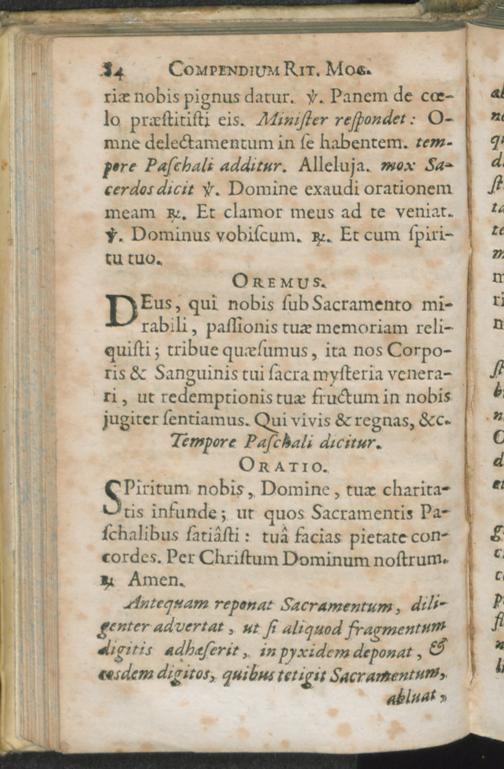 84 COMPENDIUM RIT. MOG.
riæ nobis pignus datur. ℣. Panem de cœ-
lo præſtitiſti eis. Miniſter reſpondet: O-
mne delectamentum in ſe habentem. tem-
pore Paſchali additur. Alleluja. mox Sa-
cerdos dicit ℣. Domine exaudi orationem
meam ℟. Et clamor meus ad te veniat.
℣. Dominus vobiſcum. ℟. Et cum ſpiri-
tu tuo.
OREMUS.
DEus, qui nobis ſub Sacramento mi-
rabili, paſſionis tuæ memoriam reli-
quiſti; tribue quæſumus, ita nos Corpo-
ris & Sanguinis tui ſacra myſteria venera-
ri, ut redemptionis tuæ fructum in nobis
jugiter ſentiamus. Qui vivis & regnas, &c.
Tempore Paſchali dicitur.
ORATIO.
SPiritum nobis, Domine, tuæ charita-
tis infunde; ut quos Sacramentis Pa-
ſchalibus ſatiâſti: tuâ facias pietate con-
cordes. Per Chriſtum Dominum noſtrum.
℟ Amen.
Antequam reponat Sacramentum, dili-
genter advertat, ut ſi aliquod fragmentum
digitis adhæſerit, in pyxidem deponat, &
eosdem digitos, quibus tetigit Sacramentum,
abluat,